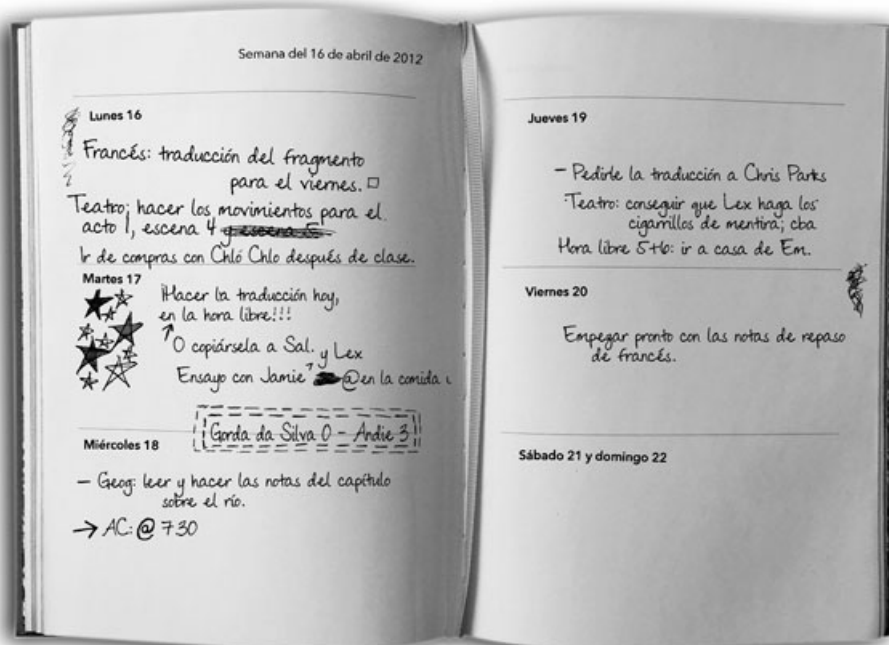 Semana del 16 de abril de 2012
Lunes 16
Francés: traducción del fragmento
para el viernes. □
Teatro; hacer los movimientos para el
acto 1, escena 4 y escena 5
Ir de compras con Chlo Chlo después de clase.
Martes 17
¡Hacer la traducción hoy,
en la hora libre!!!
O copiársela a Sal.
y Lex
Ensayo con Jamie @ en la comida
Gorda da Silva 0 – Andie 3
Miércoles 18
– Geog: leer y hacer las notas del capítulo
sobre el río.
→ AC: @ 730
Jueves 19
– Pedirle la traducción a Chris Parks
Teatro: conseguir que Lex haga los
cigarrillos de mentira; cba
Hora libre 5+6: ir a casa de Em.
Viernes 20
Empezar pronto con las notas de repaso
de francés.
Sábado 21 y domingo 22